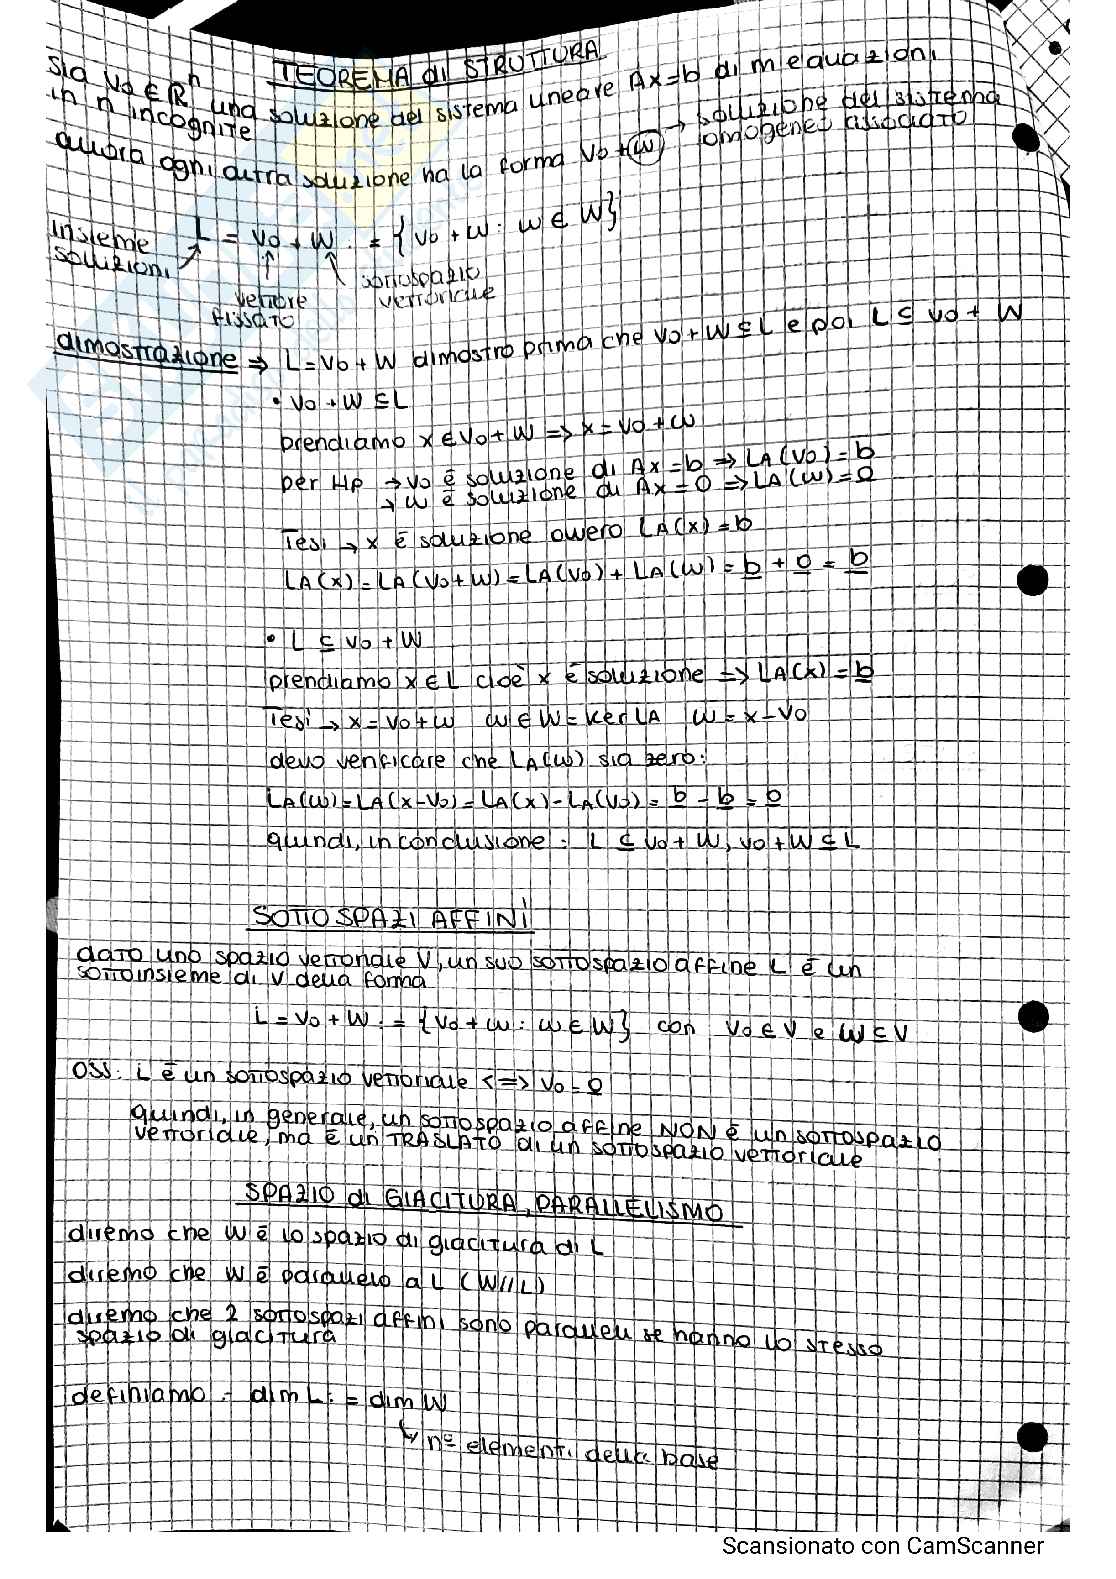 TEOREMA di STRUTTURA
Sia v0 ∈ ℝⁿ una soluzione del sistema lineare Ax=b di m equazioni
in n incognite
allora ogni altra soluzione ha la forma v0 + w → soluzione del sistema
omogeneo associato
L = v0 + W := {v0 + w : w ∈ W}
insieme
soluzioni
vettore
fissato
sottospazio
vettoriale
dimostrazione ⇒ L = v0 + W dimostro prima che v0 + W ⊆ L e poi L ⊆ v0 + W
• v0 + W ⊆ L
prendiamo x ∈ v0 + W => x = v0 + w
per Hp → v0 è soluzione di Ax = b => LA(v0) = b
→ w è soluzione di Ax = 0 => LA(w) = 0
Tesi → x è soluzione ovvero LA(x) = b
LA(x) = LA(v0 + w) = LA(v0) + LA(w) = b + 0 = b
• L ⊆ v0 + W
prendiamo x ∈ L cioè x è soluzione => LA(x) = b
Tesi → x = v0 + w w ∈ W = Ker LA w = x - v0
devo verificare che LA(w) sia zero:
LA(w) = LA(x - v0) = LA(x) - LA(v0) = b - b = 0
quindi, in conclusione: L ⊆ v0 + W, v0 + W ⊆ L
SOTTOSPAZI AFFINI
dato uno spazio vettoriale V, un suo sottospazio affine L è un
sottoinsieme di V della forma
L = v0 + W := {v0 + w : w ∈ W} con v0 ∈ V e W ⊆ V
OSS: L è un sottospazio vettoriale <=> v0 = 0
quindi, in generale, un sottospazio affine NON è un sottospazio
vettoriale, ma è un TRASLATO di un sottospazio vettoriale
SPAZIO di GIACITURA, PARALLELISMO
diremo che W è lo spazio di giacitura di L
diremo che W è parallelo a L (W//L)
diremo che 2 sottospazi affini sono paralleli se hanno lo stesso
spazio di giacitura
definiamo: dim L := dim W
↳ n° elementi della base
Scansionato con CamScanner